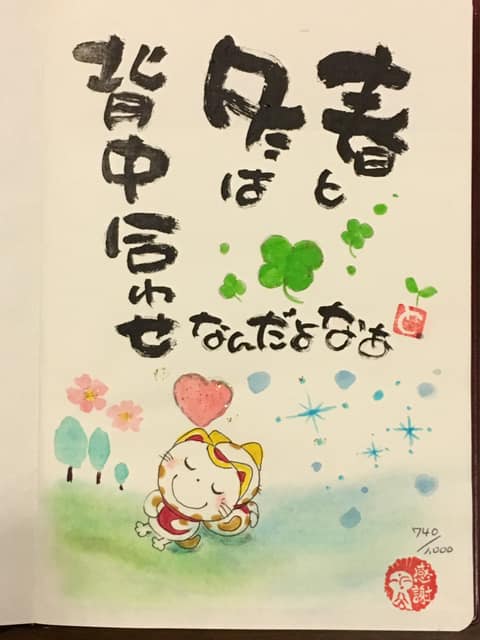 春と
冬は
背中合わせ
なんだよなぁ
と
740/1,000
感謝